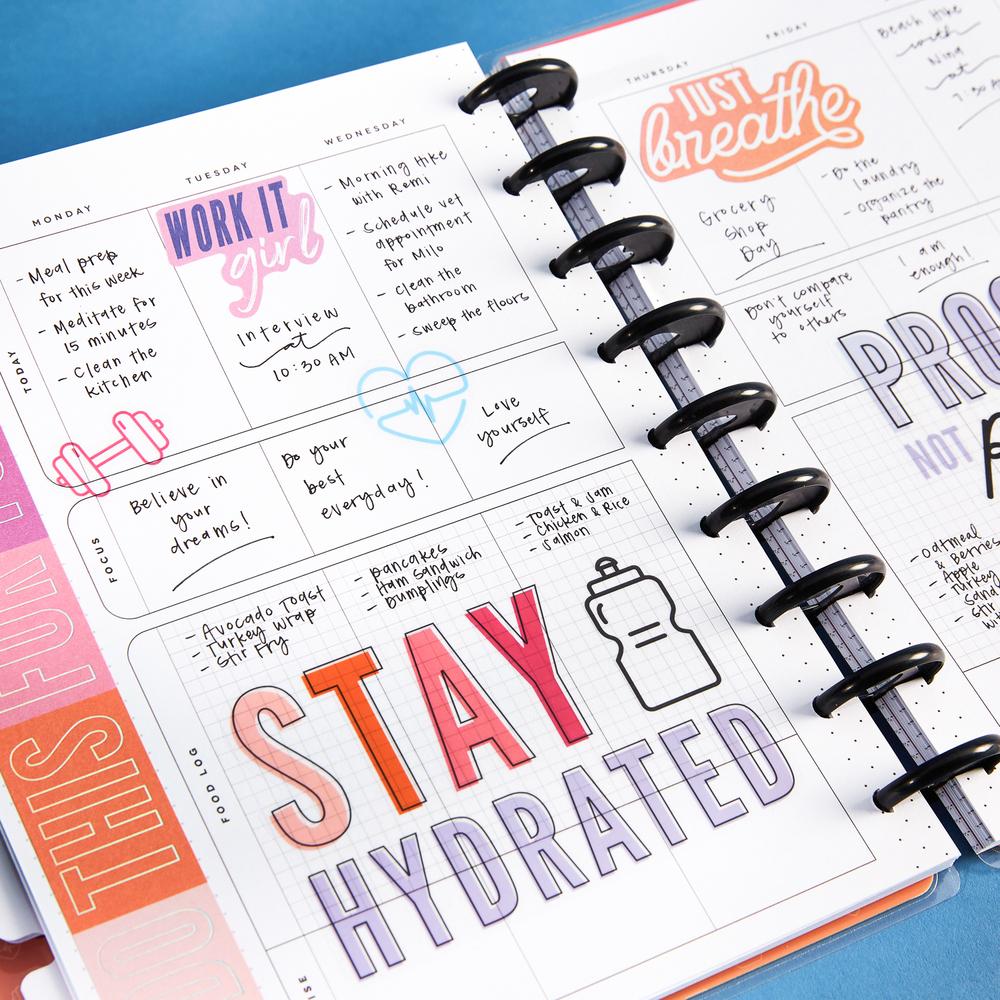 MONDAY
TUESDAY
WEDNESDAY
TODAY
- Meal prep
for this week
- Meditate for
15 minutes
- Clean the
kitchen
WORK IT
girl
Interview
at
10:30 AM
- Morning Hike
with Remi
- Schedule vet
appointment
for Milo
- Clean the
bathroom
- Sweep the floors
FOCUS
Believe in
your
dreams!
Do your
best
everyday!
Love
yourself
FOOD LOG
- Avocado Toast
- Turkey Wrap
- Stir Fry
- Pancakes
- Ham Sandwich
- Dumplings
- Toast & Jam
- Chicken & Rice
- Salmon
STAY
HYDRATED
THIS
THURSDAY
FRIDAY
JUST
breathe
Grocery
Shop
Day
- Do the
laundry
- organize the
pantry
Beach Hike
with
Nina
at
Don't compare
yourself
to others
I am
enough!
NOT
- Oatmeal
& Berries
- Apple
- Turkey